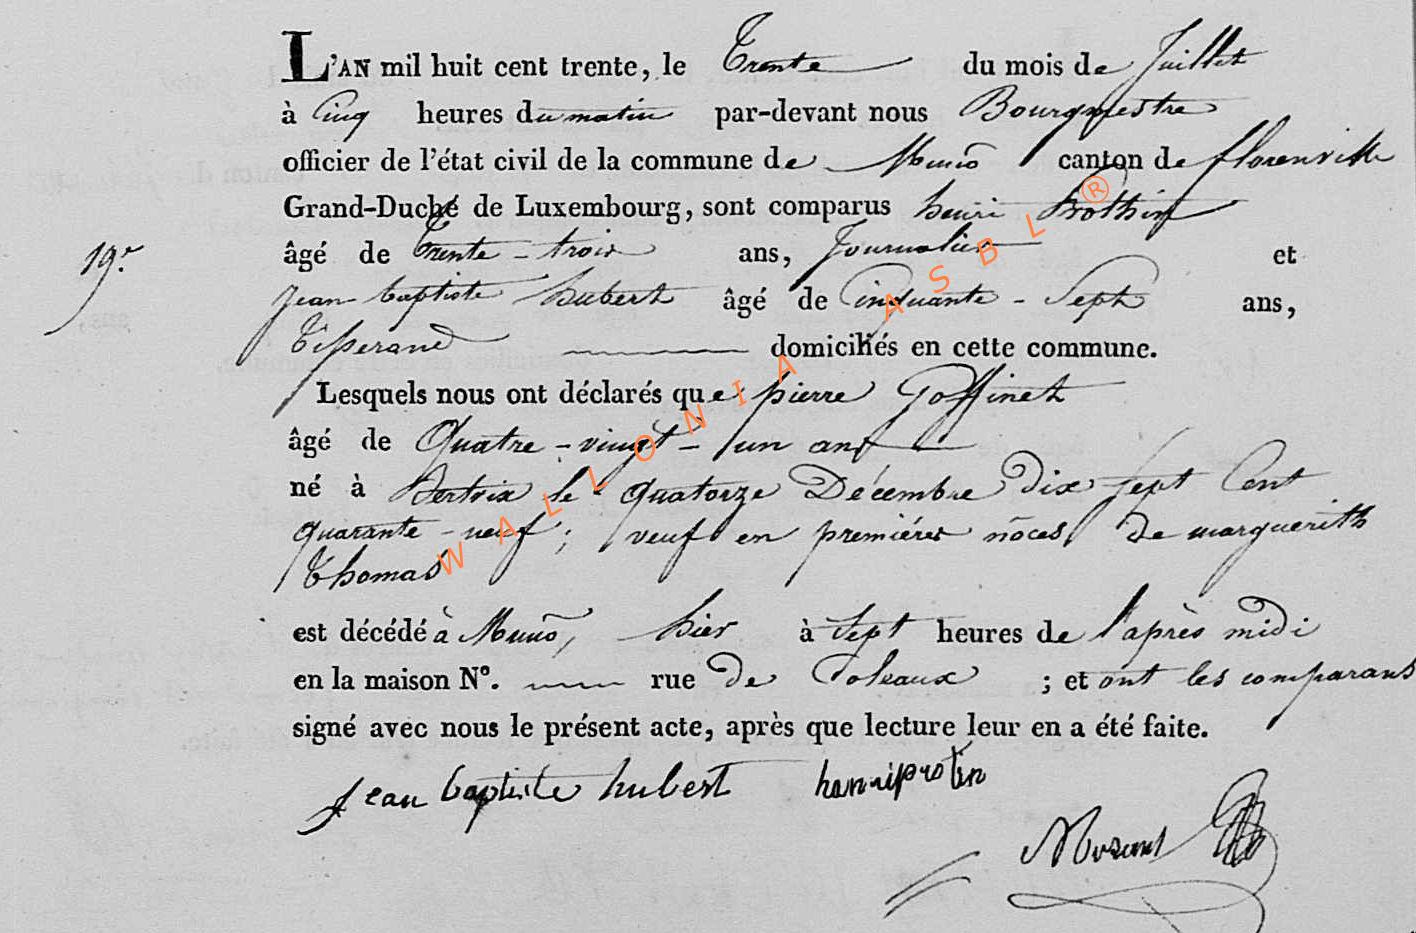 L'AN mil huit cent trente, le Trente du mois de Juillet
à Cinq heures du matin par-devant nous Bourgmestre
officier de l'état civil de la commune de Munõ canton de florenville
Grand-Duché de Luxembourg, sont comparus henri Prothin
19.e
âgé de Trente-trois ans, Journalier et
Jean-baptiste hubert âgé de Cinquante-Sept ans,
Tisserand domiciliés en cette commune.
Lesquels nous ont déclarés que pierre Goffinet
âgé de Quatre-vingt-un ans
né à Bertrix le quatorze Décembre dix sept Cent
quarante-neuf; veuf en premières nôces de marguerith
Thomas
est décédé à Munõ, hier à Sept heures de l'après midi
en la maison N°. rue de ; et ont les comparans
signé avec nous le présent acte, après que lecture leur en a été faite.
jean baptiste hubert hanriprotin
WALLONIA ASBL ®